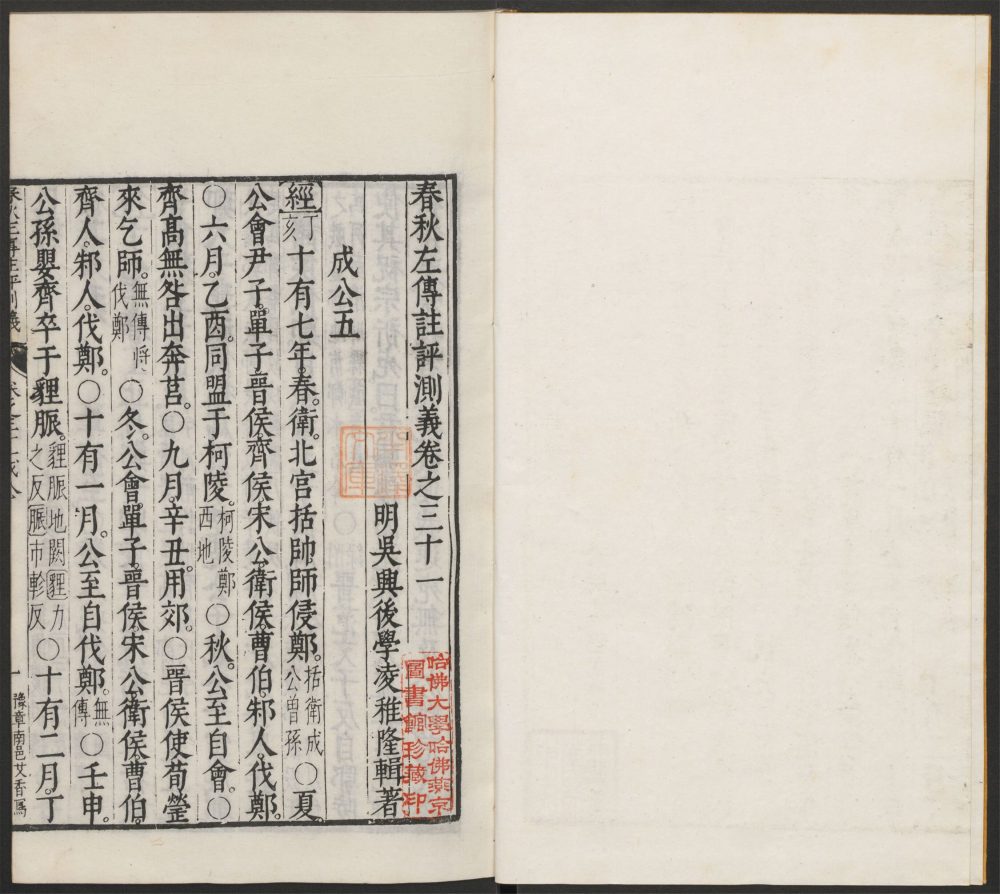 春秋左傳註評測義卷之三十一
明吳興後學凌稚隆輯著
哈佛大學哈佛燕京
圖書館珍藏印
成公五
經丁亥十有七年。春。衛。北宮括帥師侵鄭。括衛成公曾孫〇夏。
公會尹子。單子。晉侯。齊侯。宋公。衛侯。曹伯。邾人。伐鄭。
〇六月。乙酉。同盟于柯陵。柯陵鄭西地〇秋。公至自會。〇
齊高無咎出奔莒。〇九月。辛丑。用郊。〇晉侯使荀罃
來乞師。無傳將伐鄭〇冬。公會單子。晉侯。宋公。衛侯。曹伯。
齊人。邾人。伐鄭。〇十有一月。公至自伐鄭。無傳〇壬申。
公孫嬰齊卒于貍脤。貍脤地闕貍力之反脤市軫反〇十有二月。丁
一
豫章南邑艾香寫